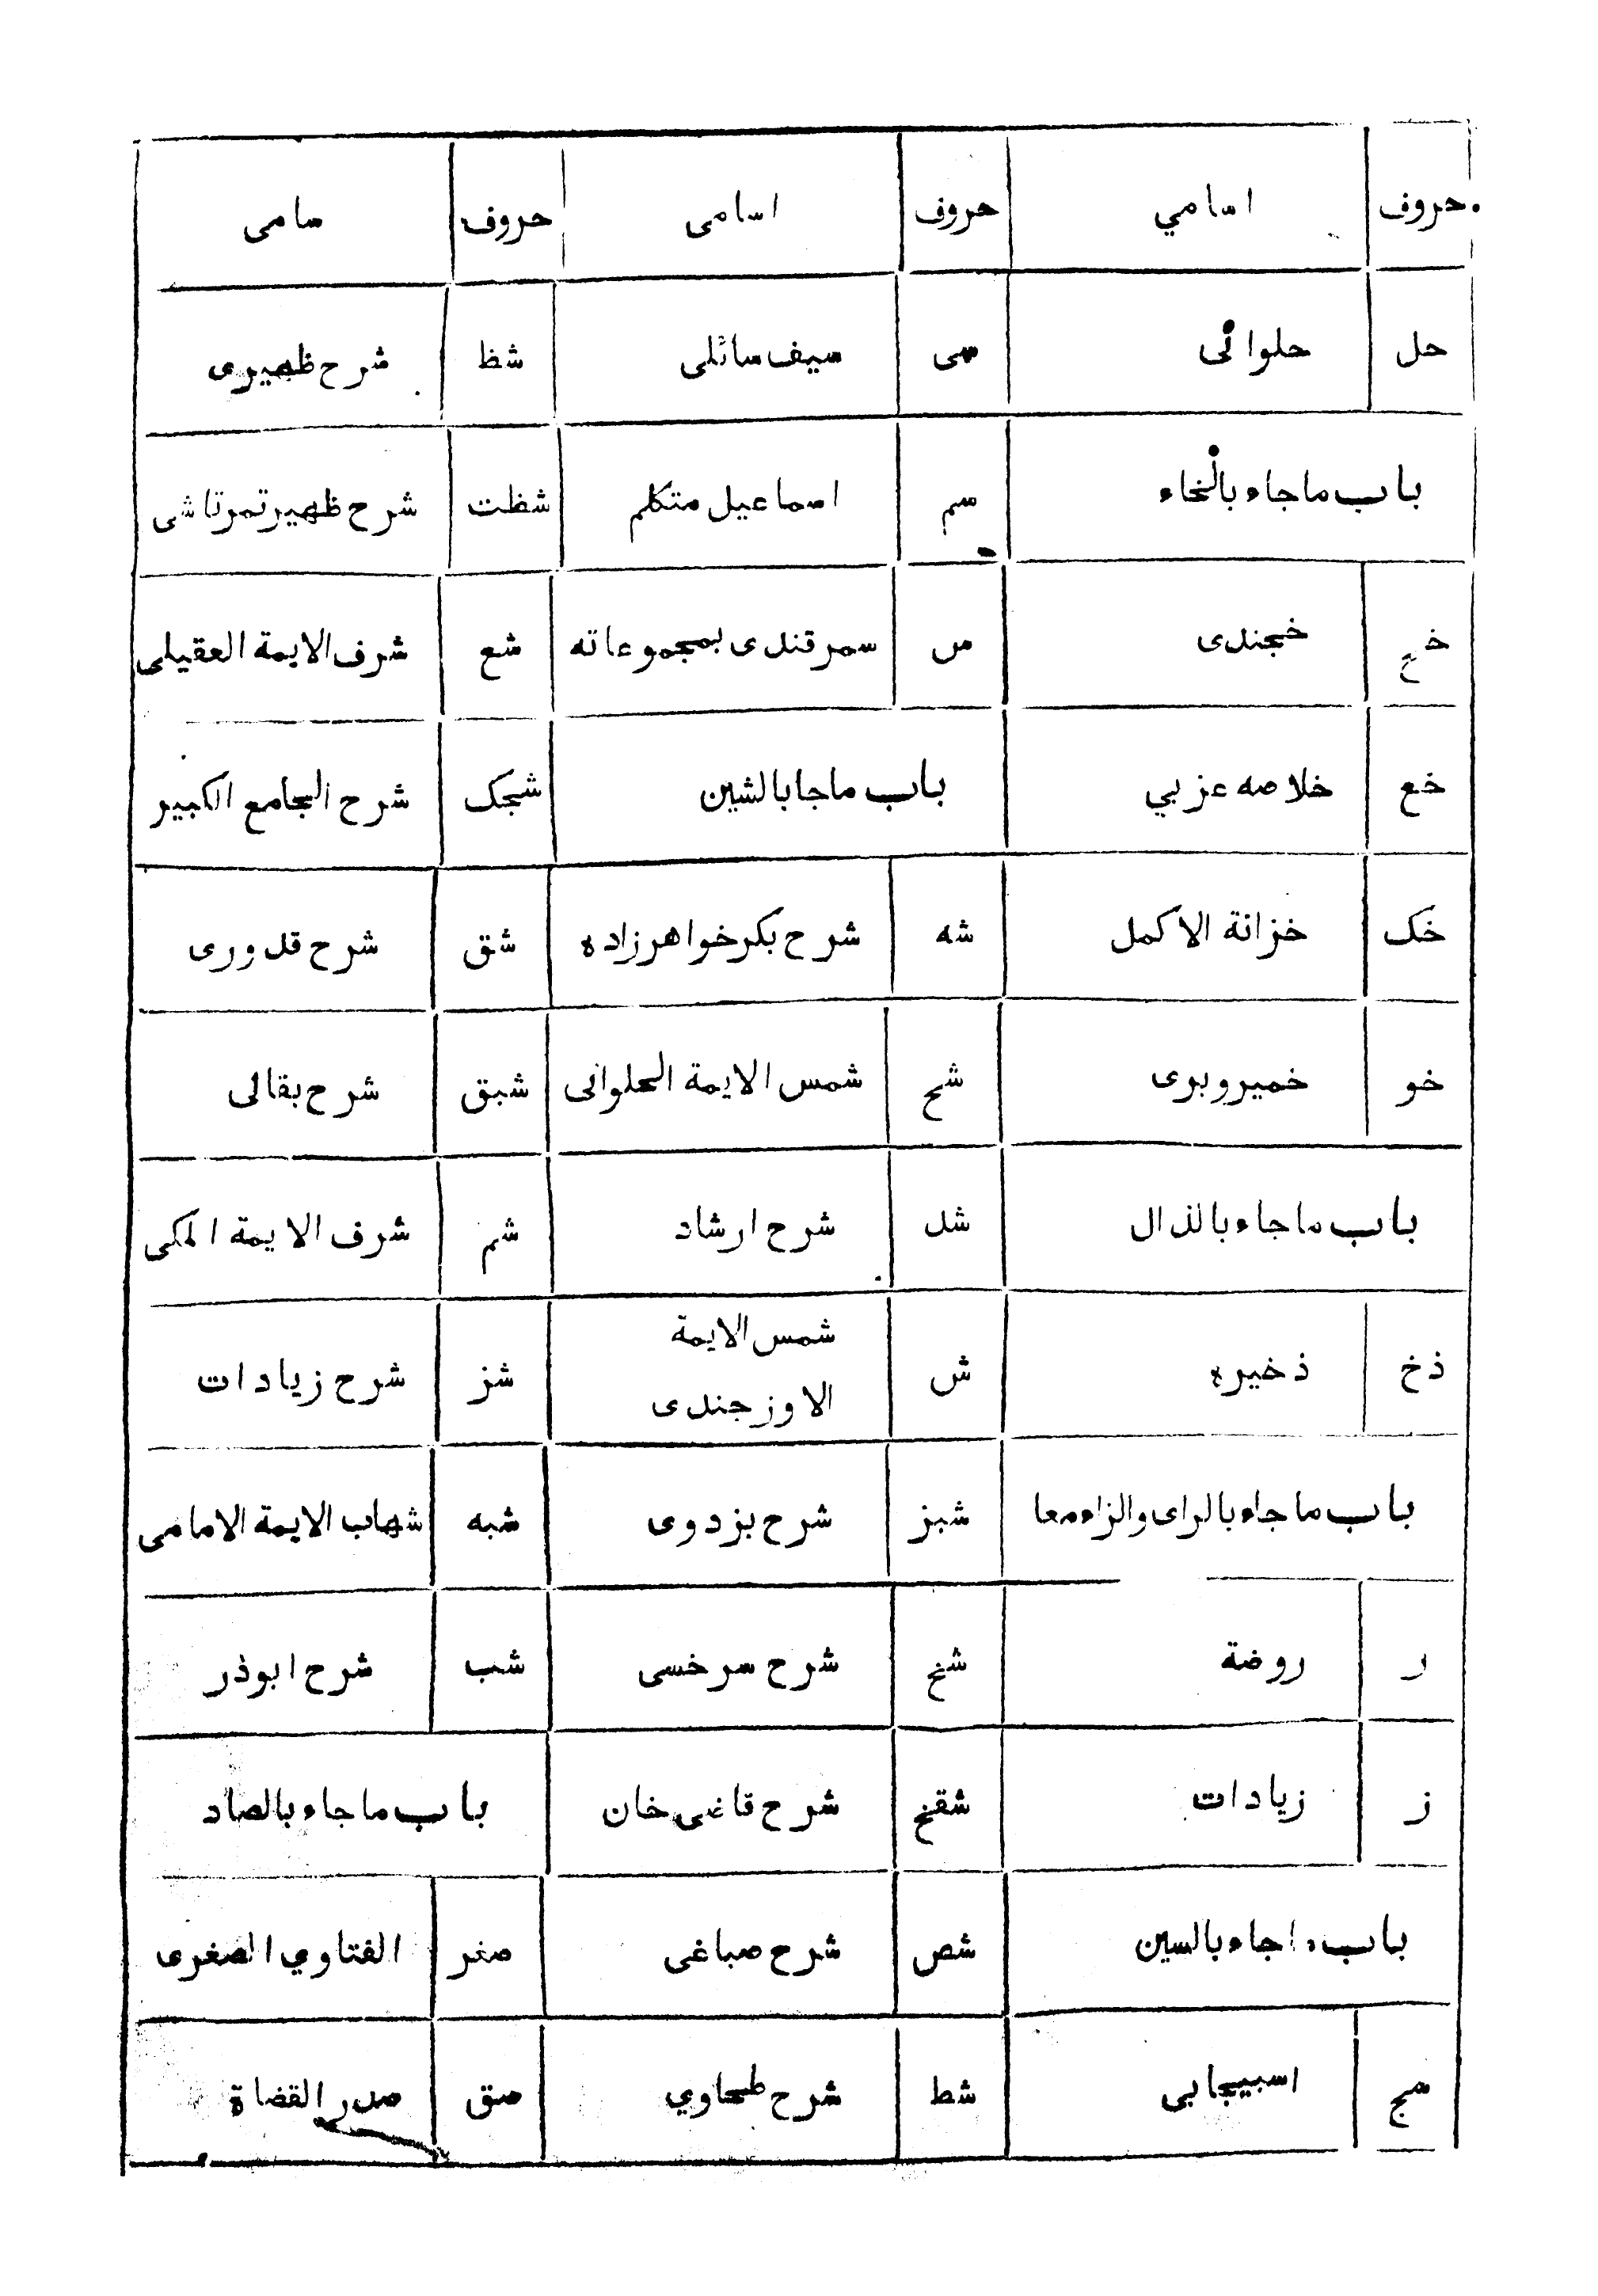 حروف اسامي حروف اسامى حروف سامى
حل حلوائى سى سيف سائلى شظ شرح ظهيرى
باب ماجاء بالخاء سم اسماعيل متكلم شظت شرح ظهير تمرتاشى
خج خجندى س سمرقندى بمجموعاته شع شرف الايمة العقيلى
خع خلاصه عزبي باب ماجا بالشين شجك شرح الجامع الكبير
خك خزانة الاكمل شه شرح بكر خواهرزاده شق شرح قدورى
خو خميروبرى شح شمس الايمة الحلوانى شبق شرح بقالى
باب ماجاء بالذال شد شرح ارشاد شم شرف الايمة المكى
ذخ ذخيره ش شمس الايمة الاوزجندى شز شرح زيادات
باب ماجاء بالراى والزاء معا شبز شرح بزدوى شبه شهاب الايمة الامامى
ر روضة شخ شرح سرخسى شب شرح ابوذر
ز زيادات شقخ شرح قاضى خان باب ماجاء بالصاد
باب ماجاء بالسين شص شرح صباغى صغر الفتاوي الصغرى
سج اسبيجابى شط شرح طحاوي صق صدر القضاة